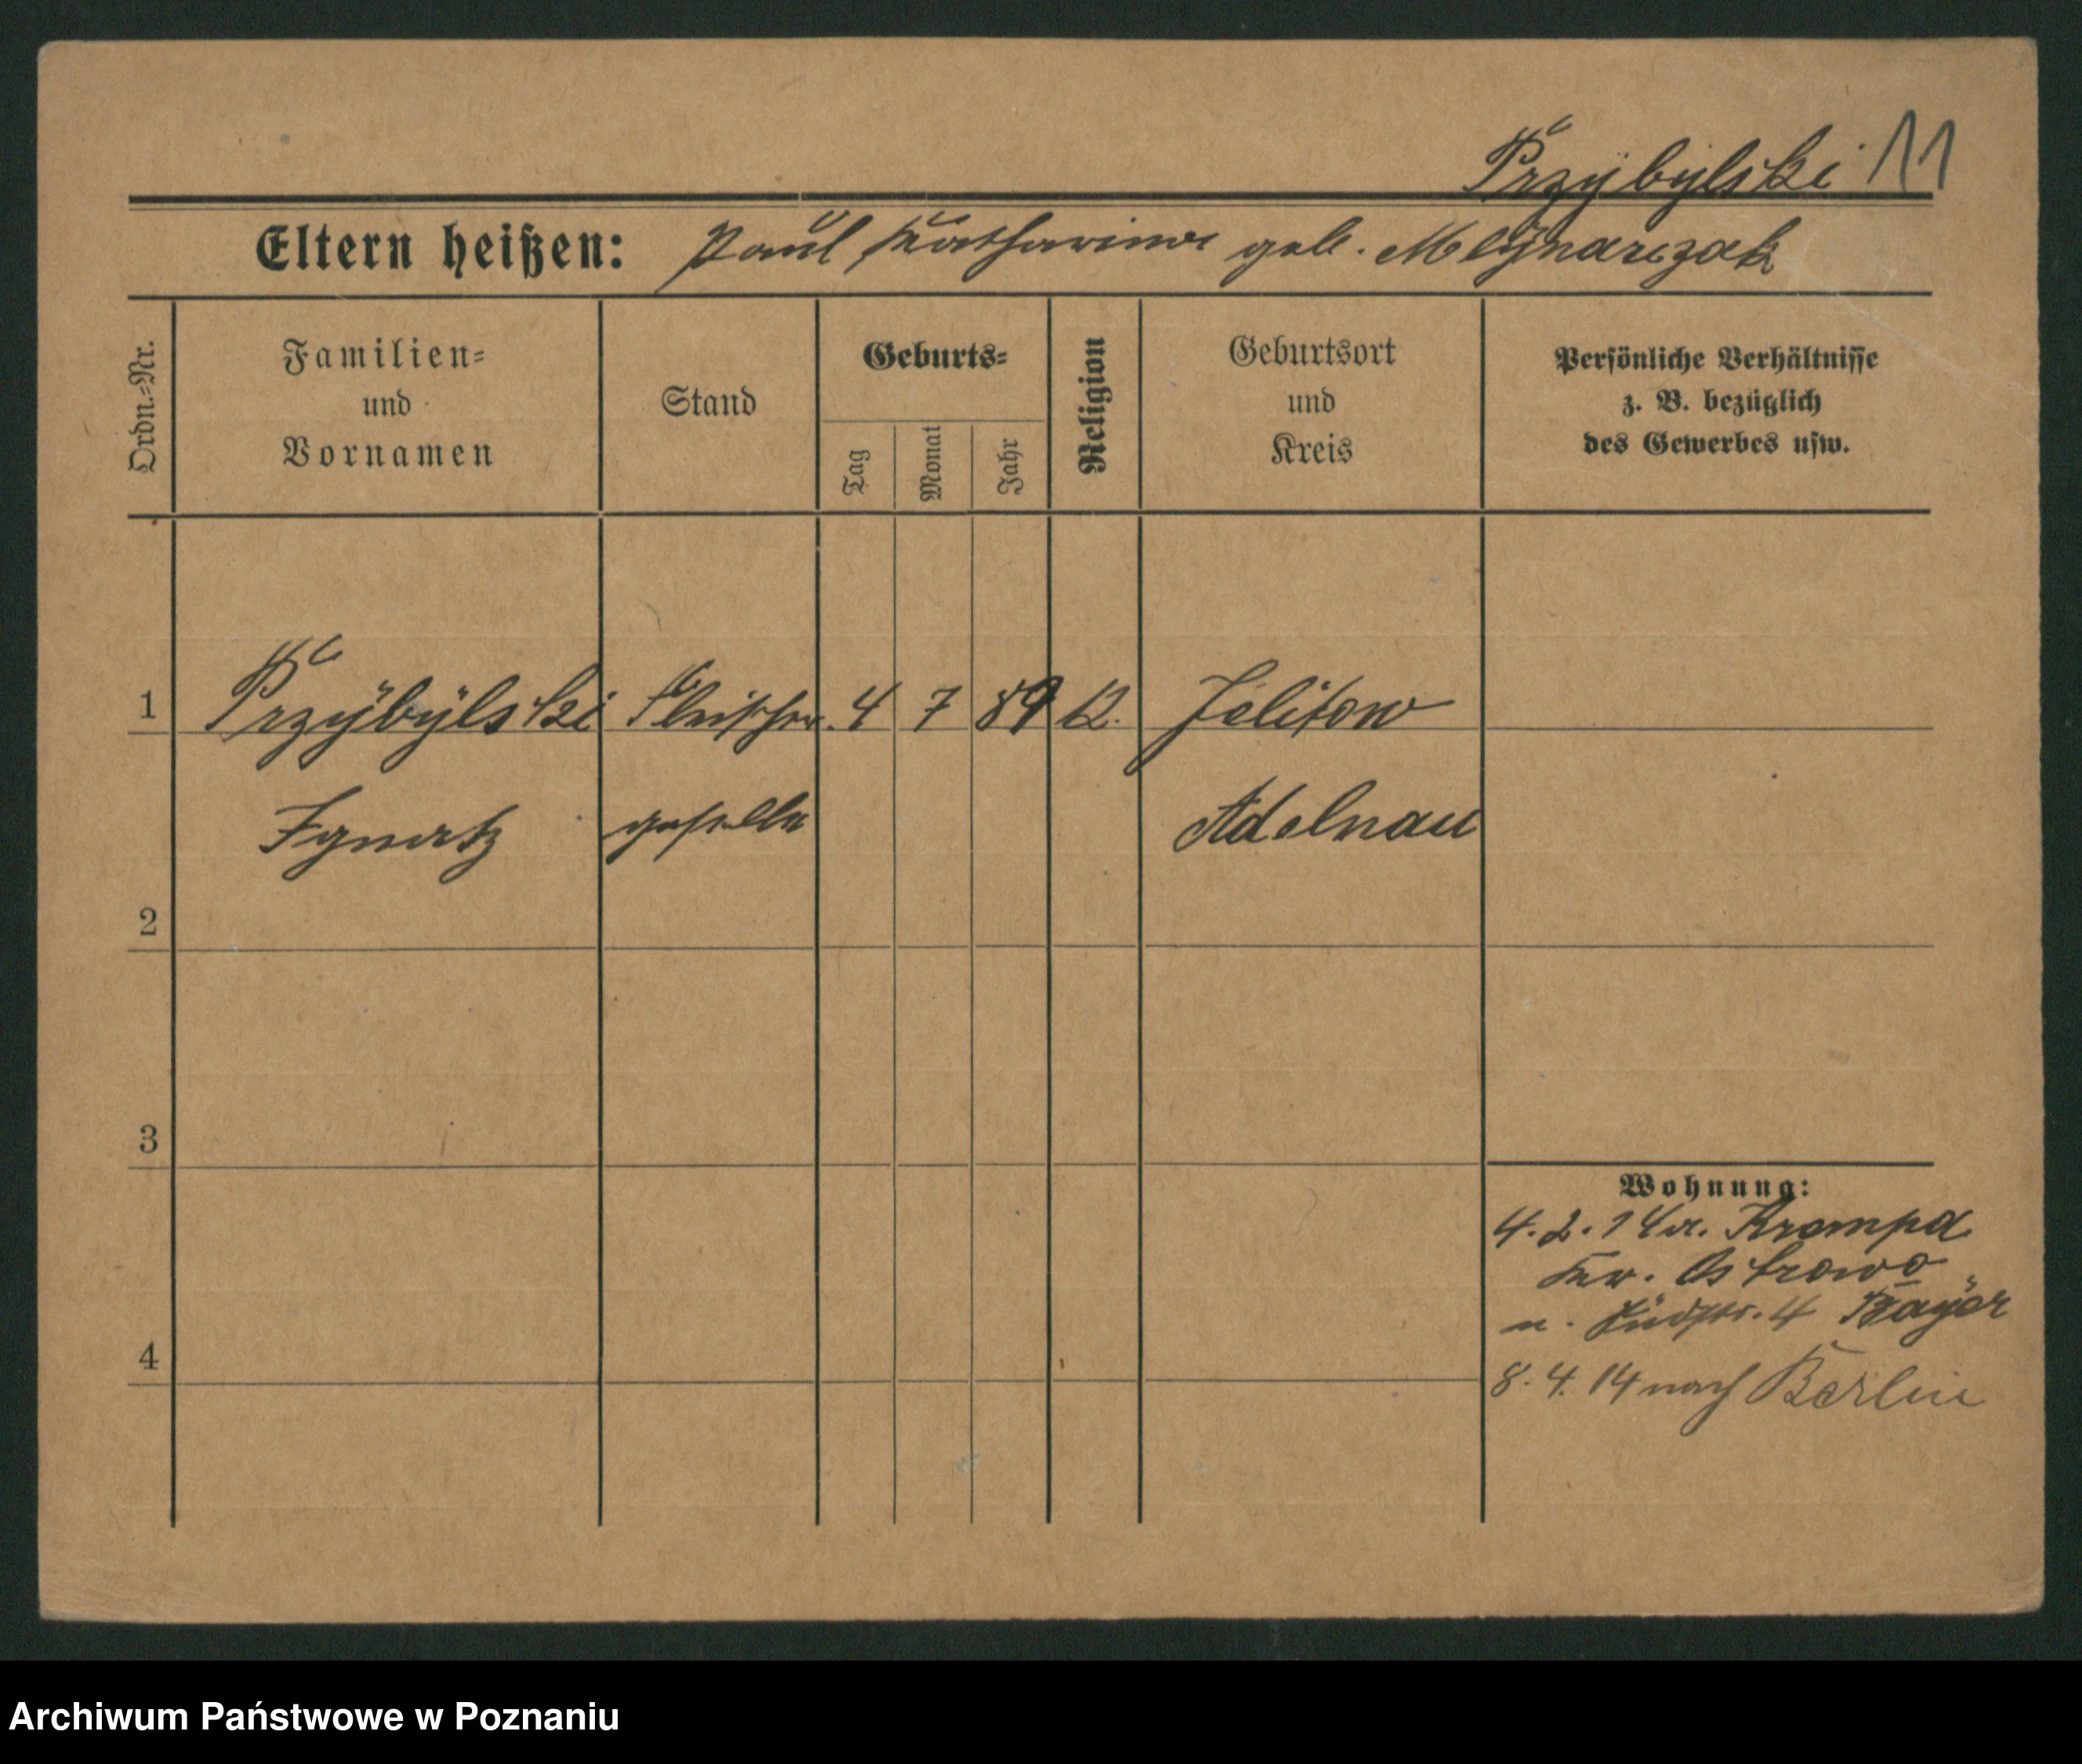 Przybylski 11
Eltern heißen: Paul Katharina geb. Mlynarczak
Ordn.-Nr.
Familien-
und
Vornamen
Stand
Geburts-
Tag
Monat
Jahr
Religion
Geburtsort
und
Kreis
Persönliche Verhältnisse
z. B. bezüglich
des Gewerbes usw.
1 Przybylski Fleischer. 4 7 89 k. Jelitow
Ignatz geselle Adelnau
2
3
Wohnung:
4.2.14 v. Krempa
Kr. Ostrowo
n. Südstr. 4 Bayer
4
8.4.14 nach Berlin
Archiwum Państwowe w Poznaniu